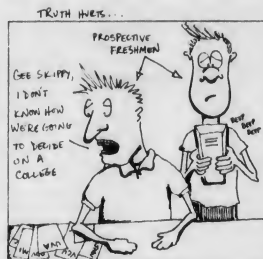 TRUTH HURTS...
PROSPECTIVE
FRESHMEN
GEE SKIPPY,
I DON'T
KNOW HOW
WE'RE GOING
TO DECIDE
ON A
COLLEGE
BEEP
BEEP
BEEP
UVA
VCU